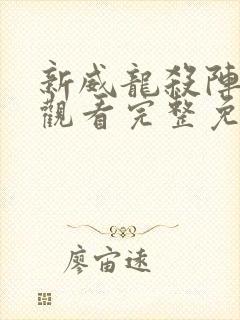 新威龍殺陣
觀看完整免
廖宙遠